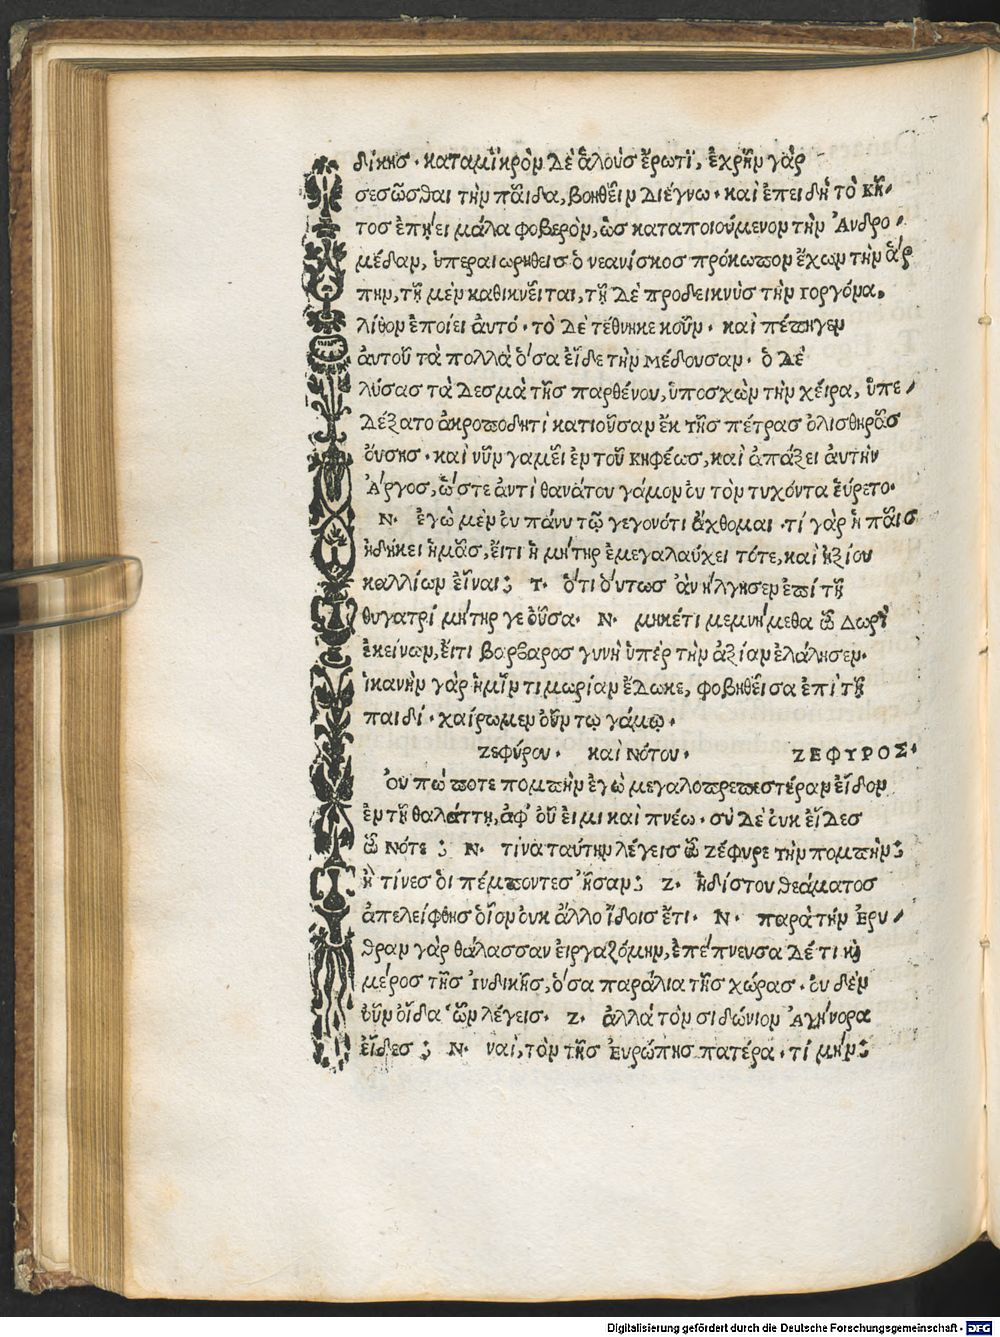 δίκης · καταμϊκρὸν δὲ ἁλοὺς ἔρωτϊ, ἐχρῆν γὰρ
σεσῶσθαι τὴν παῖδα, βοηθεῖν διέγνω · καὶ ἐπειδὴ τὸ κῆ
τος ἐπῄει μάλα φοβερὸν, ὡς καταποιούμενον τὴν Ἀνδρο
μέδαν, ὑπεραιωρηθεὶς ὁ νεανίσκος πρόκωπον ἔχων τὴν ἅρ
πην, τῇ μὲν καθικνεῖται, τῇ δὲ προδεικνὺς τὴν γοργόνα,
λίθον ἐποίει ἀυτό · τὸ δὲ τέθνηκε κοῦν · καὶ πέπηγεν
ἀυτοῦ τὰ πολλὰ ὅσα εἶδε τὴν μέδουσαν · ὁ δὲ
λύσας τὰ δεσμὰ τῆς παρθένου, ὑποσχὼν τὴν χέιρα, ὑπε
δέξατο ἀκροποδητὶ κατιοῦσαν ἐκ τῆς πέτρας ὀλισθηρᾶς
ὄυσης · καὶ νῦν γαμεῖ ἐν τοῦ κηφέως, καὶ ἀπάξει ἀυτὴν
Ἄργος, ὥστε ἀντὶ θανάτου γάμον ὀυ τὸν τυχόντα ἕυρετο ·
Ν · ἐγὼ μὲν ὀυ πάνυ τῷ γεγονότι ἄχθομαι · τί γὰρ ἡ παῖς
ἠδίκει ἡμᾶς, ἔιτι ἡ μήτηρ ἐμεγαλαύχει τότε, καὶ ἠξίου
καλλίων εἶναι; Τ · ὅτι ὅυτως ἂν ἤλγησεν ἐπὶ τῇ
θυγατρὶ μήτηρ γε ὀῦσα · Ν · μηκέτι μεμνήμεθα ὦ Δωρὶ
ἐκείνων, ἔιτι βάρβαρος γυνὴ ὑπὲρ τὴν ἀξίαν ἐλάλησεν ·
ἱκανὴν γὰρ ἡμῖν τιμωρίαν ἔδωκε, φοβηθεῖσα ἐπὶ τῇ
παιδὶ · χαίρωμεν ὀῦν τῳ γάμῳ ·
ζεφύρου · καὶ Νότου · ΖΕΦΥΡΟΣ ·
Ὀυ πώποτε πομπὴν ἐγὼ μεγαλοπρεπεστέραν εἶδον
ἐν τῇ θαλάττῃ, ἀφ' ὀῦ ἐιμι καὶ πνέω · σὺ δὲ ὀυκ εἶδες
ὦ Νότε; Ν · τίνα ταύτην λέγεις ὦ ζέφυρε τὴν πομπήν;
ἢ τίνες ὁι πέμποντες ἦσαν; Ζ · ἡδίστου θεάματος
ἀπελείφθης ὁῖον ὀυκ ἄλλο ἴδοις ἔτι · Ν · παρὰ τὴν Ἐρυ
θραν γὰρ θάλασσαν ἐιργαζόμην, ἐπέπνευσα δέ τι κὶ
μέρος τῆς Ἰνδικῆς, ὅσα παράλια τῆς χώρας · ὀυδὲν
ὀῦν οἶδα ὧν λέγεις · Ζ · ἀλλὰ τὸν σιδώνιον Ἀγήνορα
εἶδες; Ν · ναὶ, τὸν τῆς Ἐυρώπης πατέρα · τί μήν;
Digitalisierung gefördert durch die Deutsche Forschungsgemeinschaft - DFG